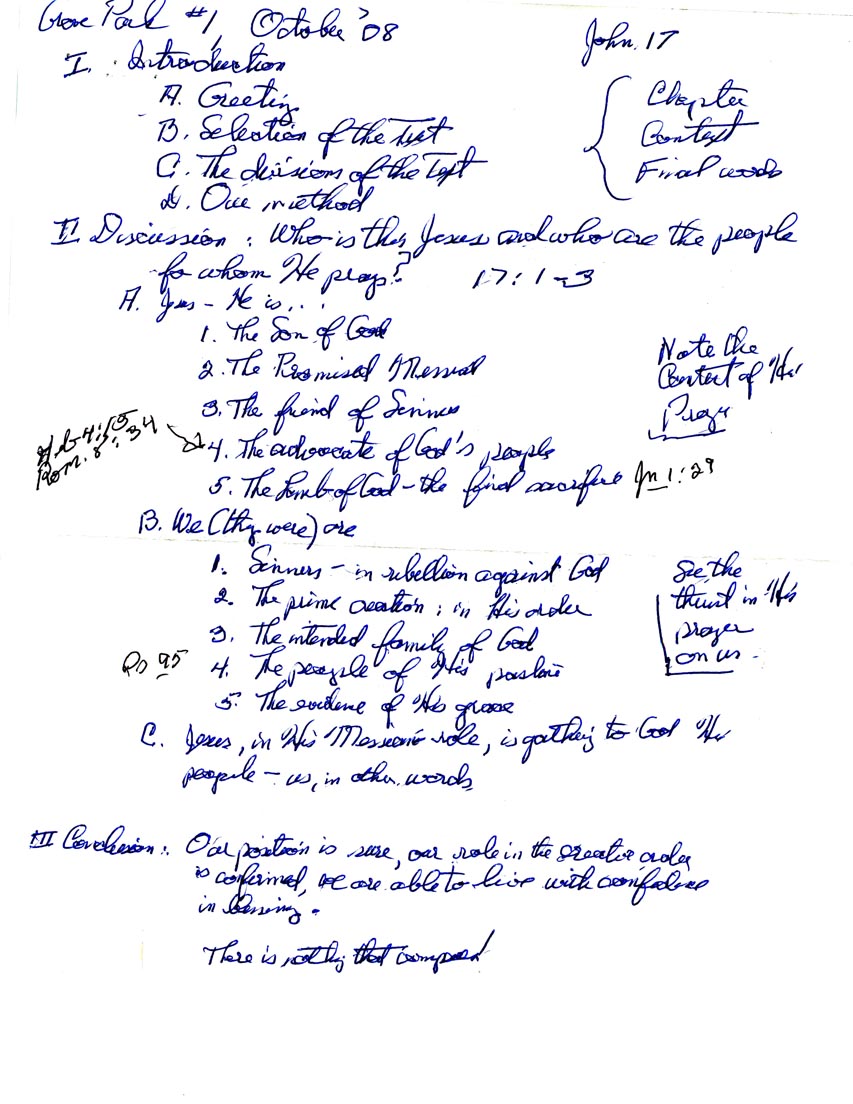 Grove Park #1, October '08
John 17
I. Introduction
A. Greeting
B. Selection of the Text
C. The divisions of the Text
D. Our method
Chapter
Context
Final words
II. Discussion: Who is this Jesus and who are the people
for whom He prays? 17:1-3
A. Jesus - He is...
1. The Son of God
2. The Promised Messiah
3. The friend of Sinners
Heb 4:15
Rom. 8:34
4. The advocate of God's people
5. The Lamb of God - the final sacrifice Jn 1:29
Note the
Content of His
Prayer
B. We (they were) are
1. Sinners - in rebellion against God
2. The prime creation: in His order
3. The intended family of God
Ps 95
4. The people of His pasture
5. The evidence of His grace
See the
thrust in His
prayer
on us.
C. Jesus, in His Messianic role, is gathering to God His
people - us, in other words
III Conclusion: Our position is sure, our role in the creative order
is confirmed, we are able to live with confidence
in
There is nothing that